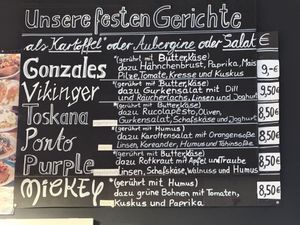 Unsere festen Gerichte
als Kartoffel* oder Aubergine oder Salat €
Gonzales *(gerührt mit Butter, Käse)
dazu Hähnchenbrust, Paprika, Mais
Pilze, Tomate, Kresse und Kuskus 9,-€
Vikinger *(gerührt mit Butter, Käse)
dazu Gurkensalat mit Dill
und Räucherlachs, Linsen und Joghurt 9,50€
Toskana *(gerührt mit Butter, Käse)
dazu Rucolapesto, Oliven,
Gurkensalat, Schafskäse und Joghurt 8,50€
Ponto *(gerührt mit Humus)
dazu Karottensalat mit Orangensoße
Linsen, Koreander, Humus und Tahinsoße 8,50€
Purple *(gerührt mit Butter, Käse)
dazu Rotkraut mit Apfel und Traube
Linsen, Schafskäse, Walnuss und Humus 8,50€
Mickey *(gerührt mit Humus)
dazu grüne Bohnen mit Tomaten,
Kuskus und Paprika 8,50€